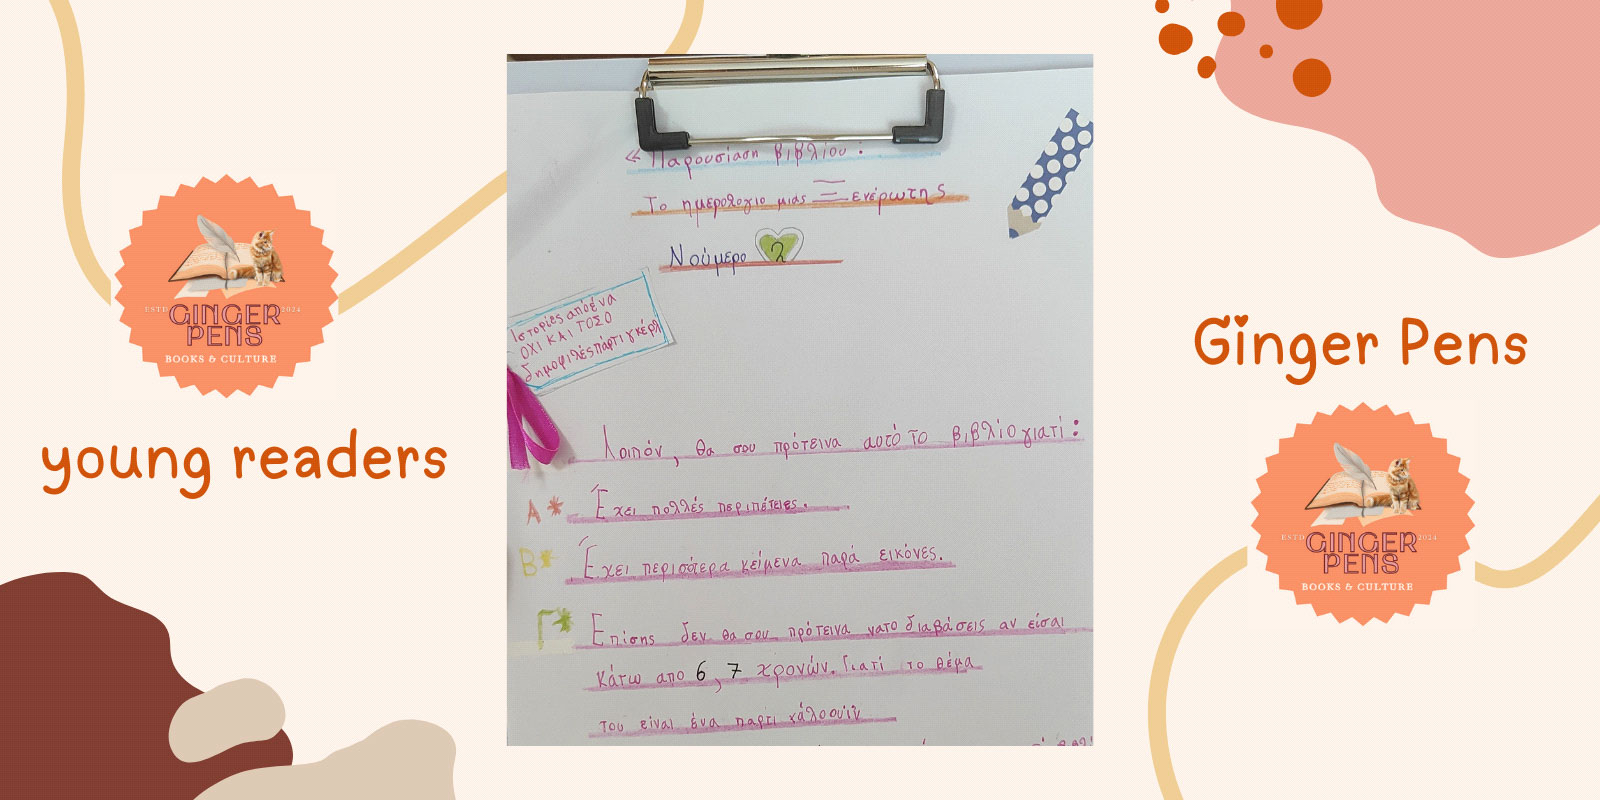 ESTD GINGER 2024
PENS
BOOKS & CULTURE
young readers
« Παρουσίαση βιβλίου :
Το ημερολόγιο μιας Ξενέρωτης
Νούμερο 2
Ιστορίες από ένα
ΟΧΙ ΚΑΙ ΤΟΣΟ
δημοφιλές πάρτι γκέρλ
Λοιπόν, θα σου πρότεινα αυτό το βιβλίο γιατί :
Α* Έχει πολλές περιπέτειες.
Β* Έχει περισότερα κείμενα παρά εικόνες.
Γ* Επίσης δεν θα σου πρότεινα να το διαβάσεις αν είσαι
κάτω απο 6, 7 χρονών. Γιατί το θέμα
του είναι ένα παρτι χάλοουίν
Ginger Pens
ESTD GINGER 2024
PENS
BOOKS & CULTURE